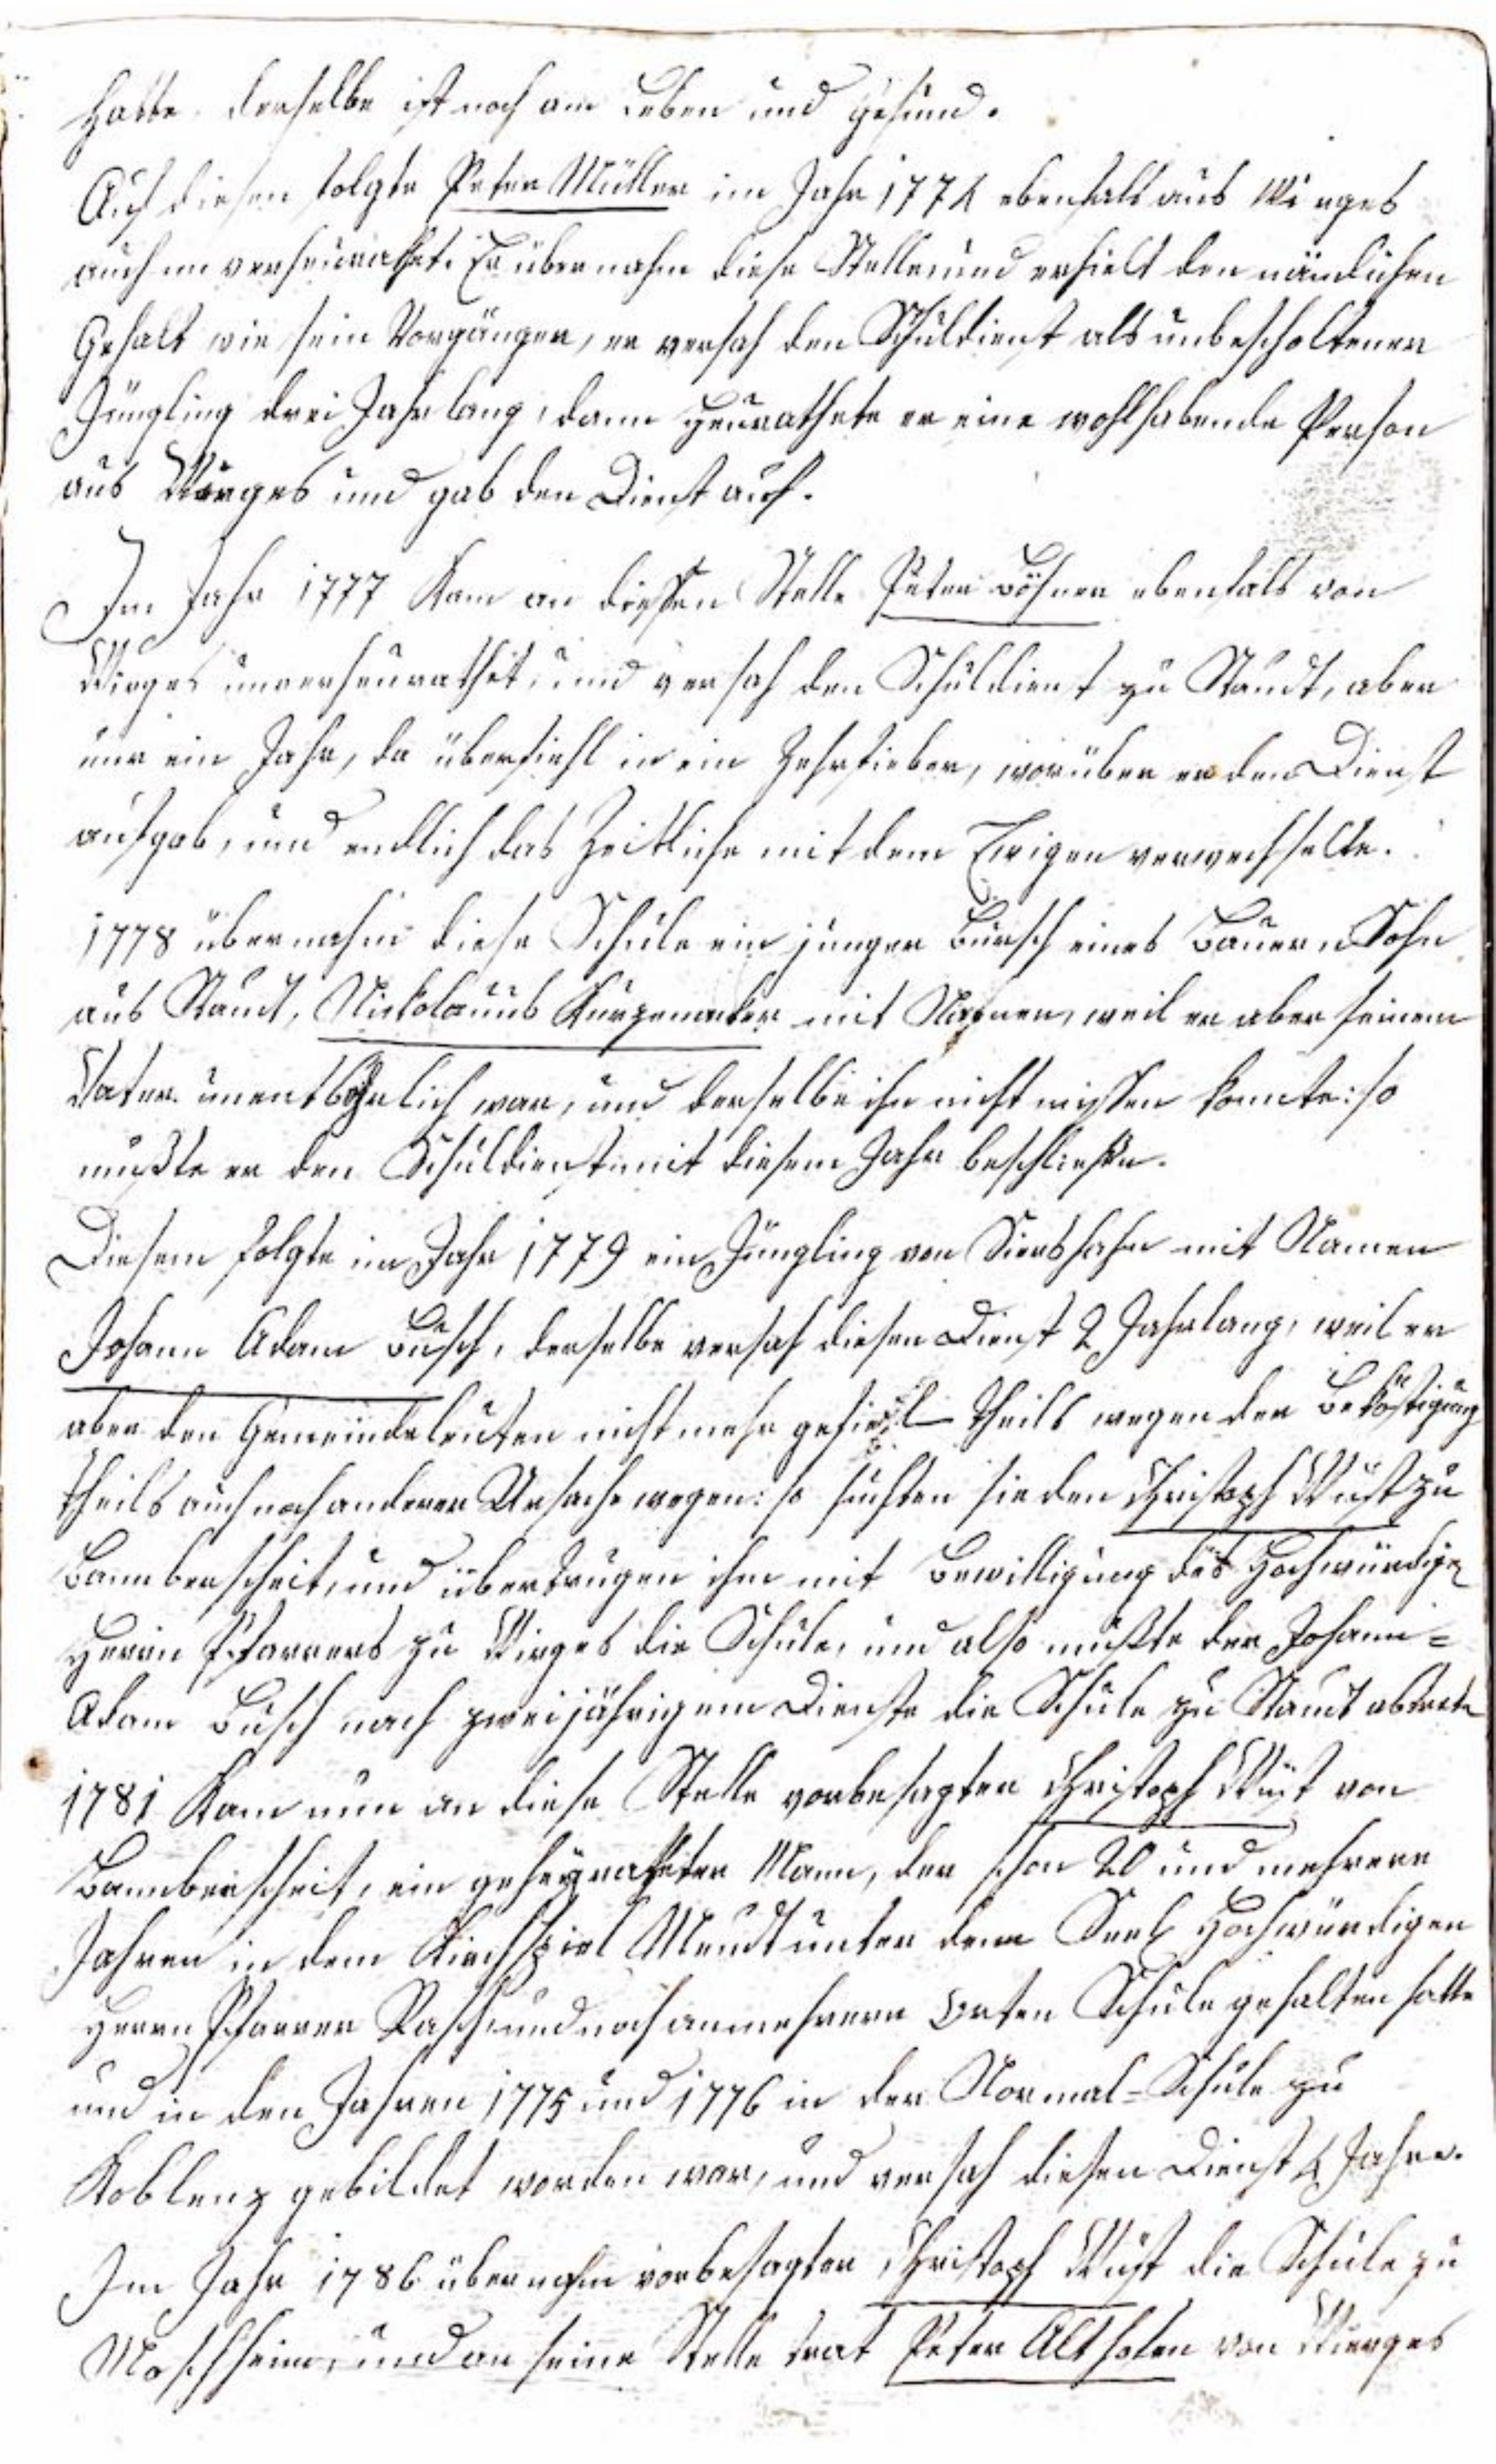 hatte. derselbe ist noch am Leben und gesund.
Auf diesen folgte Peter Müller im Jahr 1774 ebenfals aus Wirges
auch unverheurathet. Er übernahm diese Stelle und erhielt den nämlichen
Gehalt wie sein Vorgänger, er versah den Schuldienst als unbescholtener
Jüngling drei Jahr lang, dann heurathete er eine wohlhabende Person
aus Wirges und gab den Dienst auf.
Im Jahr 1777 kam an dießen Stelle Peter Böhner ebenfals von
Wirges unverheurathet, und versah den Schuldienst zu Staudt, aber
nur ein Jahr, da überfiehl in ein Zehrfieber, worüber er den Dienst
aufgab, und endlich das Zeitliche mit dem Ewigen verwechselte.
1778 übernahm diese Schule ein junger Bursch eines Bauern Sohn
aus Staudt, Nickolauus mit Namen, weil er aber seinem
Vater unentbehrlich war, und derselbe ihn nicht missen konnte: so
mußte er den Schuldienst mit diesem Jahr beschließen.
Diesem folgte im Jahr 1779 ein Jüngling von Siershahn mit Namen
Johann Adam Busch, derselbe versah diesen Dienst 2 Jahrlang, weil er
aber den Gemeindsleuten nicht mehr gefiel theils wegen der Beköstigung
theils auch noch anderer Ursache wegen: so suchten sie den Christoph Wüst zu
Bannberscheit, und übertrugen ihm mit Bewilligung des Hochwürdigen
Herrn Pfarrers zu Wirges die Schule, und also mußte der Johann=
Adam Busch nach zweijährigem Dienste die Schule zu Staudt abtreten
1781 kam nun an diese Stelle vorbesagter Christoph Wüst von
Bannberscheit, ein geheyratheter Mann, der schon 20 und mehrere
Jahren in dem Kirchspiel Meudt unter dem Seel Hochwürdigen
Herrn Pfarrer Rasch und noch an mehrern Orten Schule gehalten hatte
und in den Jahren 1775 und 1776 in der Normal=Schule zu
Koblenz gebildet worden war, und versah diesen Dienst 4 Jahre.
Im Jahr 1786 übernahm vorbesagter Christoph Wüst die Schule zu
Moschheim, und an seine Stelle trat Peter Althofen von Wirges